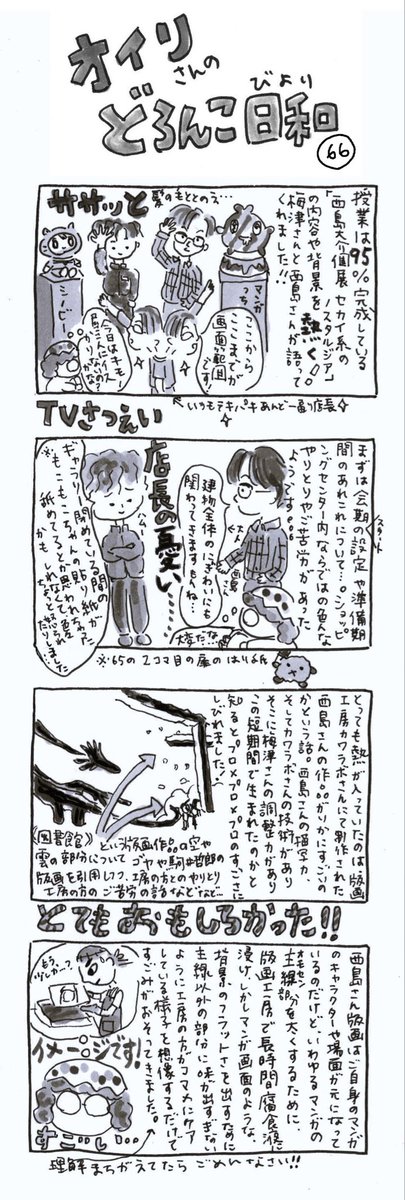 オイリさんの
どろんこ日和
びより
66
ササッと
髪のもととのえ…
授業は95%完成している
「西島大介個展 セカイ系の
ノスタルジア」
の内容や背景を熱く!!
梅津さんと西島さんが語って
くれました!!
マンガっち
シービー
ここから
ここまでが
画面の範囲
です
今日はキモノ
屋さんにイス
かりがなか
←いつもテキパキあんどー通り店長☆
TVさつえい
まずは会期の設定や準備期
スタート
間のあれこれについて…。ショッピ
ングセンター内ならではの色んな
やりとりやご苦労があった
ようです。。。
建物全体のにぎわいにも
関わってきますもんね…
西島さん
大変だな…
店長の憂い…
ギャラリー閉めている間の
もこもこちゃんの貼り紙が
舐めてるとか思われちゃった
かもしれなくて憂
しょと怒られました…
※65の2コマ目の扉のはり紙
とっても熱が入っていたのは版画
工房カワラボさんにて制作された
西島さんの作品がいかにすっごいの
かという話。西島さんの描写力、
そしてカワラボさんの技術があり
そこに梅津さんの調整力があり
この短期間で生まれたのかと
知るとプロ×プロ×プロのすっごさに
しびれました!
《図書館》という版画作品の空や
雲の部分について ゴヤや駒井哲郎の
版画を引用しつつ、工房の方とのやりとり
工房の方のご苦労の話などなど…
とてもおもしろかった!!
西島さん版画はご自身のマンガ
のキャラクターや場面が元になって
いるのだけど、いわゆるマンガの
主線部分を太くするために、
オモセン
版画工房で長時間腐食液に
浸け、しかしマンガ画面のような
背景のフラットさを出すために
主線以外の部分に味が出すぎない
ように工房の方がコマメにケア
している様子を想像するだけで
すごみがおそってきました。
もう、
いいか…?
イメージです!
すご…い…
理解まちがえてたら ごめんなさい!!